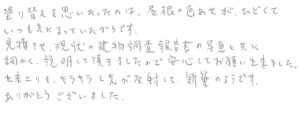 塗り替えを思いたったのは、屋根の色あせが、ひどくて
いつも気になっていたからです。
見積りで、現状の建物調査報告書の写真と共に
細かく、説明して頂きましたので安心してお願い出来ました。
出来上りも、キラキラと光が反射して、新築のようです。
ありがとうございました。